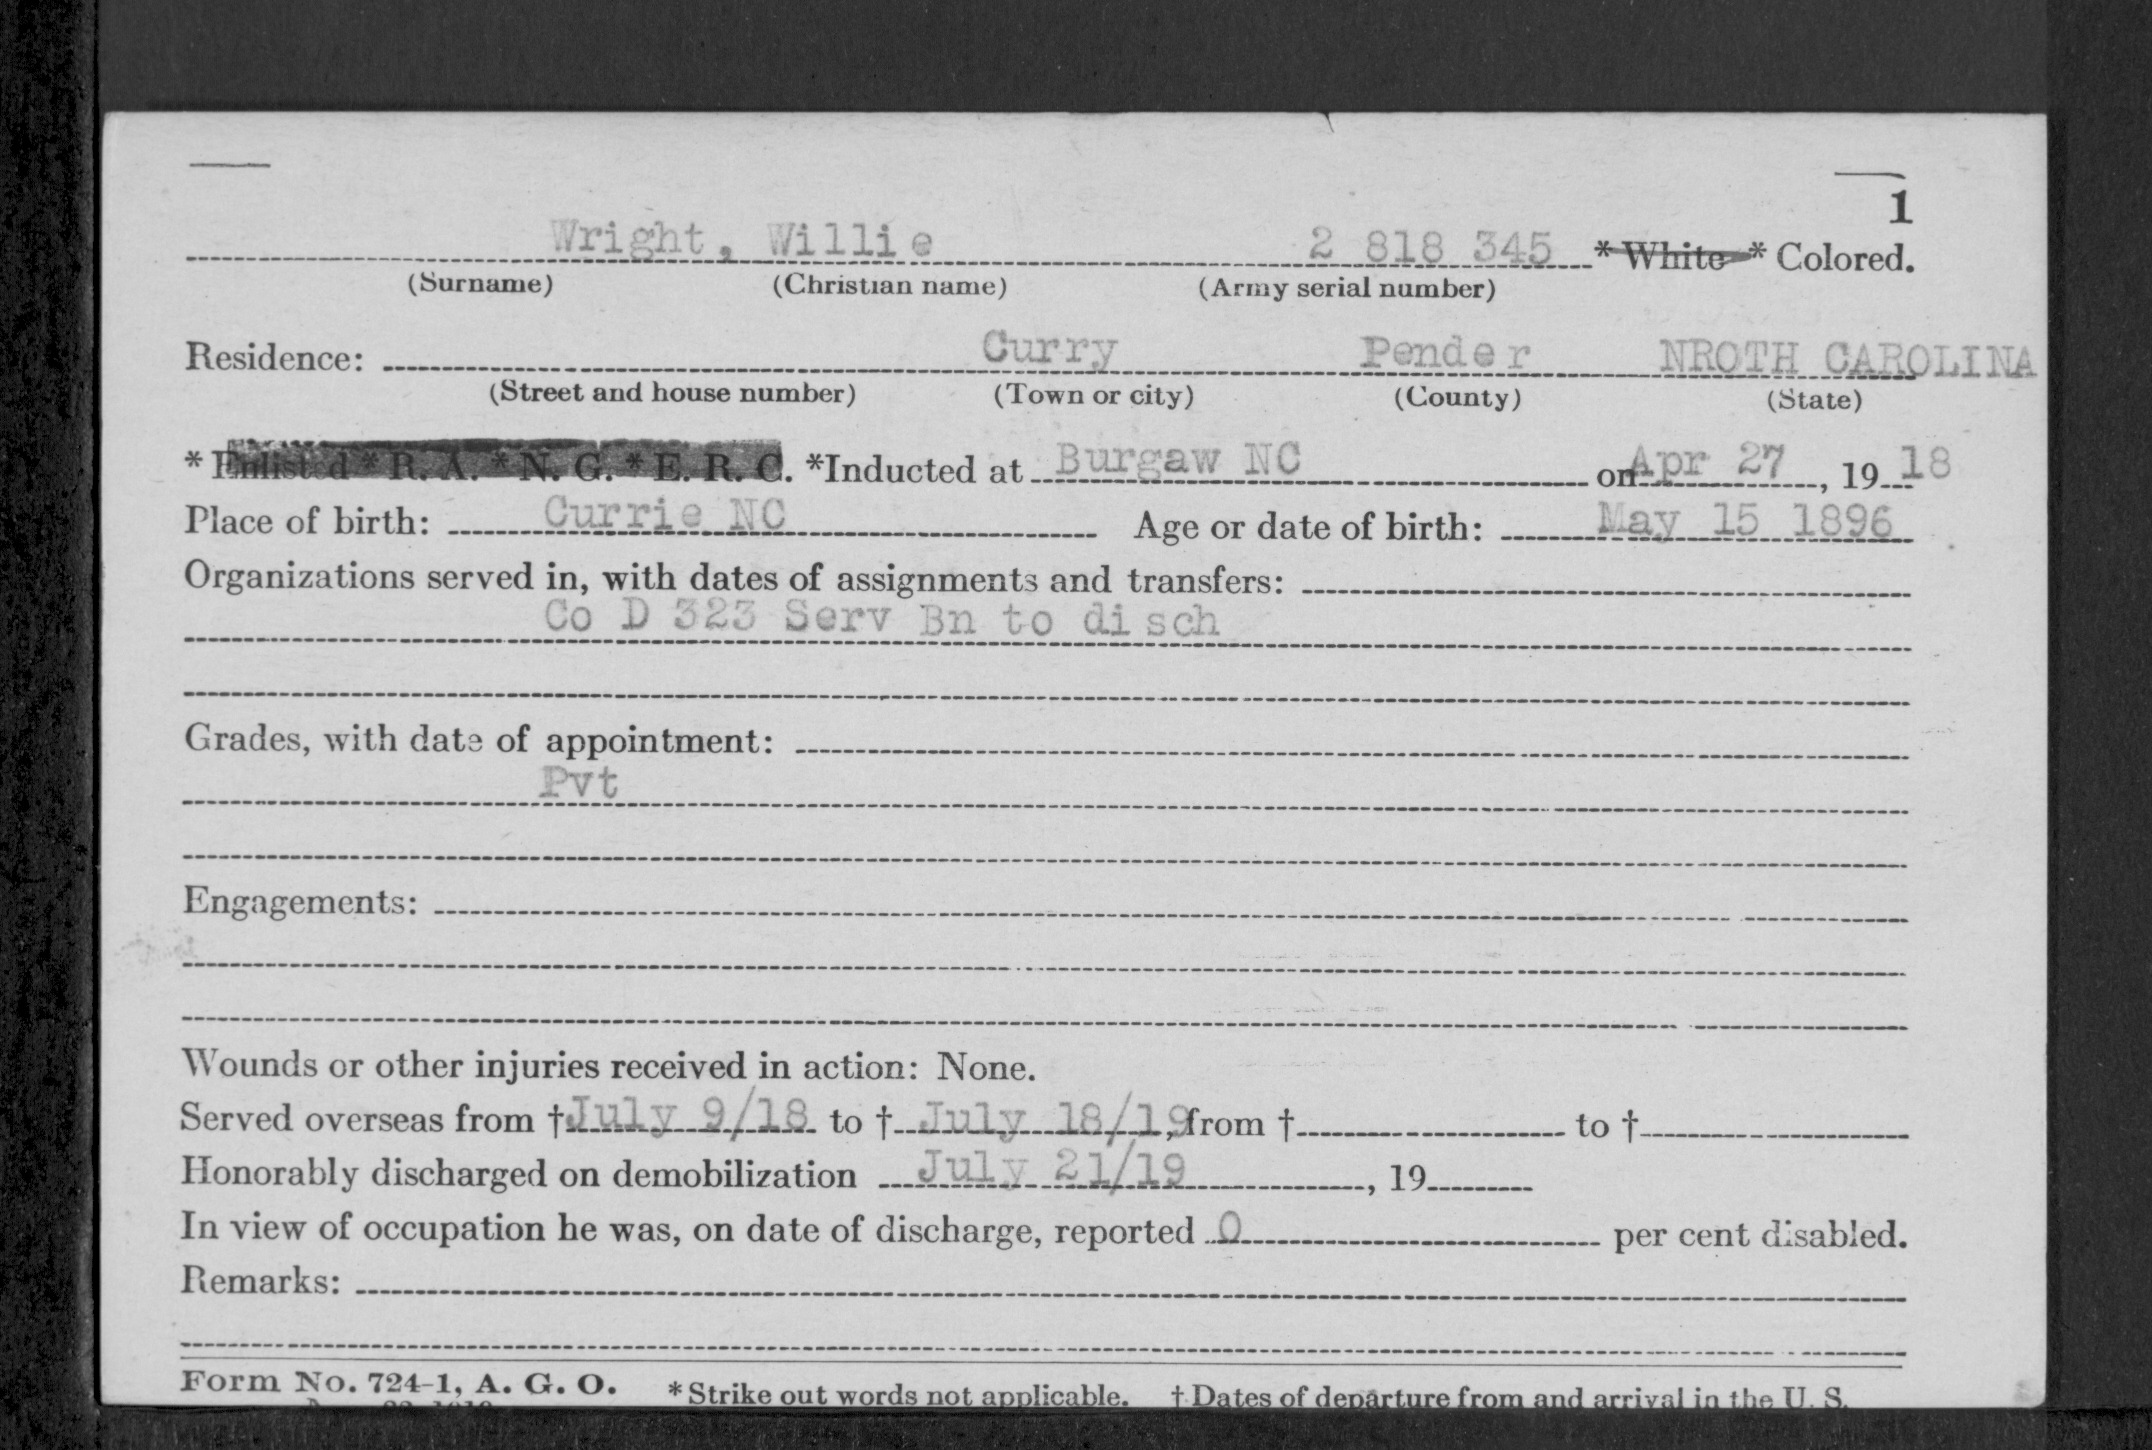 1
Wright, Willie 2 818 345 * White * Colored.
(Surname) (Christian name) (Army serial number)
Residence: Curry Pender NROTH CAROLINA
(Street and house number) (Town or city) (County) (State)
* Enlisted * R. A. * N. G. * E. R. C. *Inducted at Burgaw NC on Apr 27, 19 18
Place of birth: Currie NC Age or date of birth: May 15 1896
Organizations served in, with dates of assignments and transfers:
Co D 323 Serv Bn to disch
Grades, with date of appointment:
Pvt
Engagements:
Wounds or other injuries received in action: None.
Served overseas from † July 9/18 to † July 18/19, from † to †
Honorably discharged on demobilization July 21/19, 19
In view of occupation he was, on date of discharge, reported 0 per cent disabled.
Remarks:
Form No. 724-1, A. G. O. * Strike out words not applicable. † Dates of departure from and arrival in the U. S.